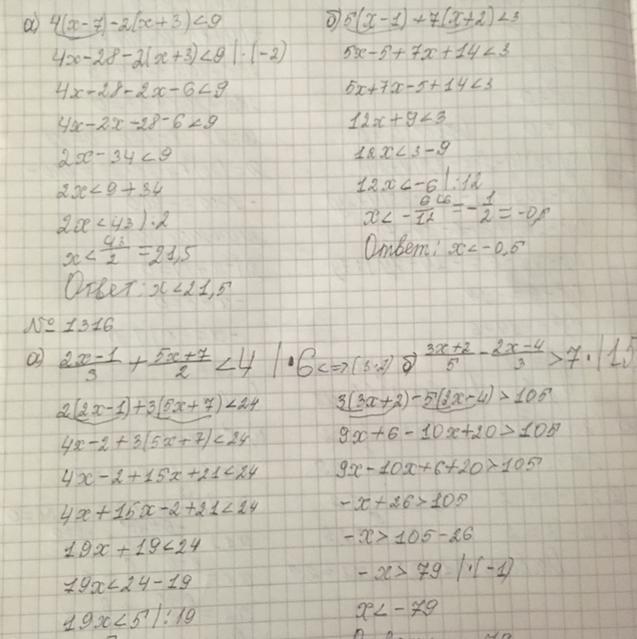 а) 4(x-7)-2(x+3)<9
4x-28-2(x+3)<9 |·(-2)
4x-28-2x-6<9
4x-2x-28-6<9
2x-34<9
2x<9+34
2x<43 |·2
x<43/2=21,5
Ответ: x<21,5
б) 5(x-1)+7(x+2)<3
5x-5+7x+14<3
5x+7x-5+14<3
12x+9<3
12x<3-9
12x<-6 |:12
x<-6/12=-1/2=-0,5
Ответ: x<-0,5
№ 1316
а) (2x-1)/3+(5x+7)/2<4 |·6
2(2x-1)+3(5x+7)<24
4x-2+3(5x+7)<24
4x-2+15x+21<24
4x+15x-2+21<24
19x+19<24
19x<24-19
19x<5 |:19
б) (3x+2)/5-(2x-4)/3>7 ·|15
3(3x+2)-5(2x-4)>105
9x+6-10x+20>105
9x-10x+6+20>105
-x+26>105
-x>105-26
-x>79 |·(-1)
x<-79